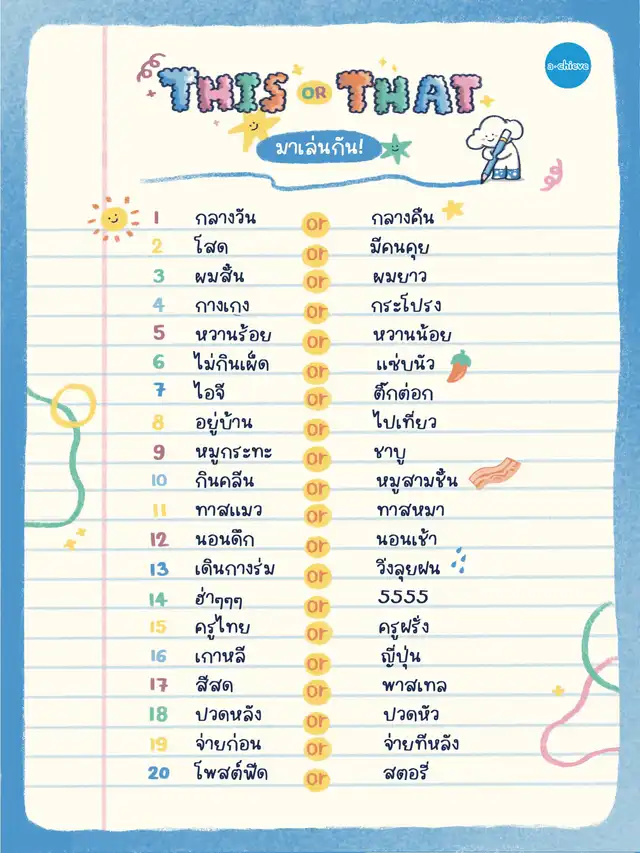 a-chieve
THIS OR THAT
มาเล่นกัน!
1 กลางวัน or กลางคืน
2 โสด or มีคนคุย
3 ผมสั้น or ผมยาว
4 กางเกง or กระโปรง
5 หวานร้อย or หวานน้อย
6 ไม่กินเผ็ด or แซ่บนัว
7 ไอจี or ติ๊กต่อก
8 อยู่บ้าน or ไปเที่ยว
9 หมูกระทะ or ชาบู
10 กินคลีน or หมูสามชั้น
11 ทาสแมว or ทาสหมา
12 นอนดึก or นอนเช้า
13 เดินกางร่ม or วิ่งลุยฝน
14 ฮ่าๆๆๆ or 5555
15 ครูไทย or ครูฝรั่ง
16 เกาหลี or ญี่ปุ่น
17 สีสด or พาสเทล
18 ปวดหลัง or ปวดหัว
19 จ่ายก่อน or จ่ายทีหลัง
20 โพสต์ฟีด or สตอรี่